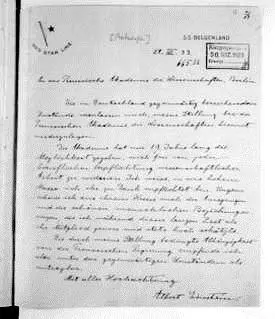 RED STAR LINE
S.S. BELGENLAND
28. III. 33
An die Preussische Akademie der Wissenschaften, Berlin
Die in Deutschland gegenwärtig herrschenden
Zustände veranlassen mich, meine Stellung bei der
Preussischen Akademie der Wissenschaften hiermit
niederzulegen.
Die Akademie hat mir 19 Jahre lang die
Möglichkeit gegeben, mich frei von jeder
beruflichen Verpflichtung wissenschaftlicher
Arbeit zu widmen. Ich weiss, in wie hohem
Masse ich ihr zu Dank verpflichtet bin. Ungern
scheide ich aus ihrem Kreise auch der Anregungen
und der schönen menschlichen Beziehungen
wegen, die ich während dieser langen Zeit als
ihr Mitglied genoss und stets hoch schätzte.
Die durch meine Stellung bedingte Abhängigkeit
von der Preussischen Regierung empfinde ich
aber unter den gegenwärtigen Umständen als
untragbar.
Mit aller Hochachtung
Albert Einstein.